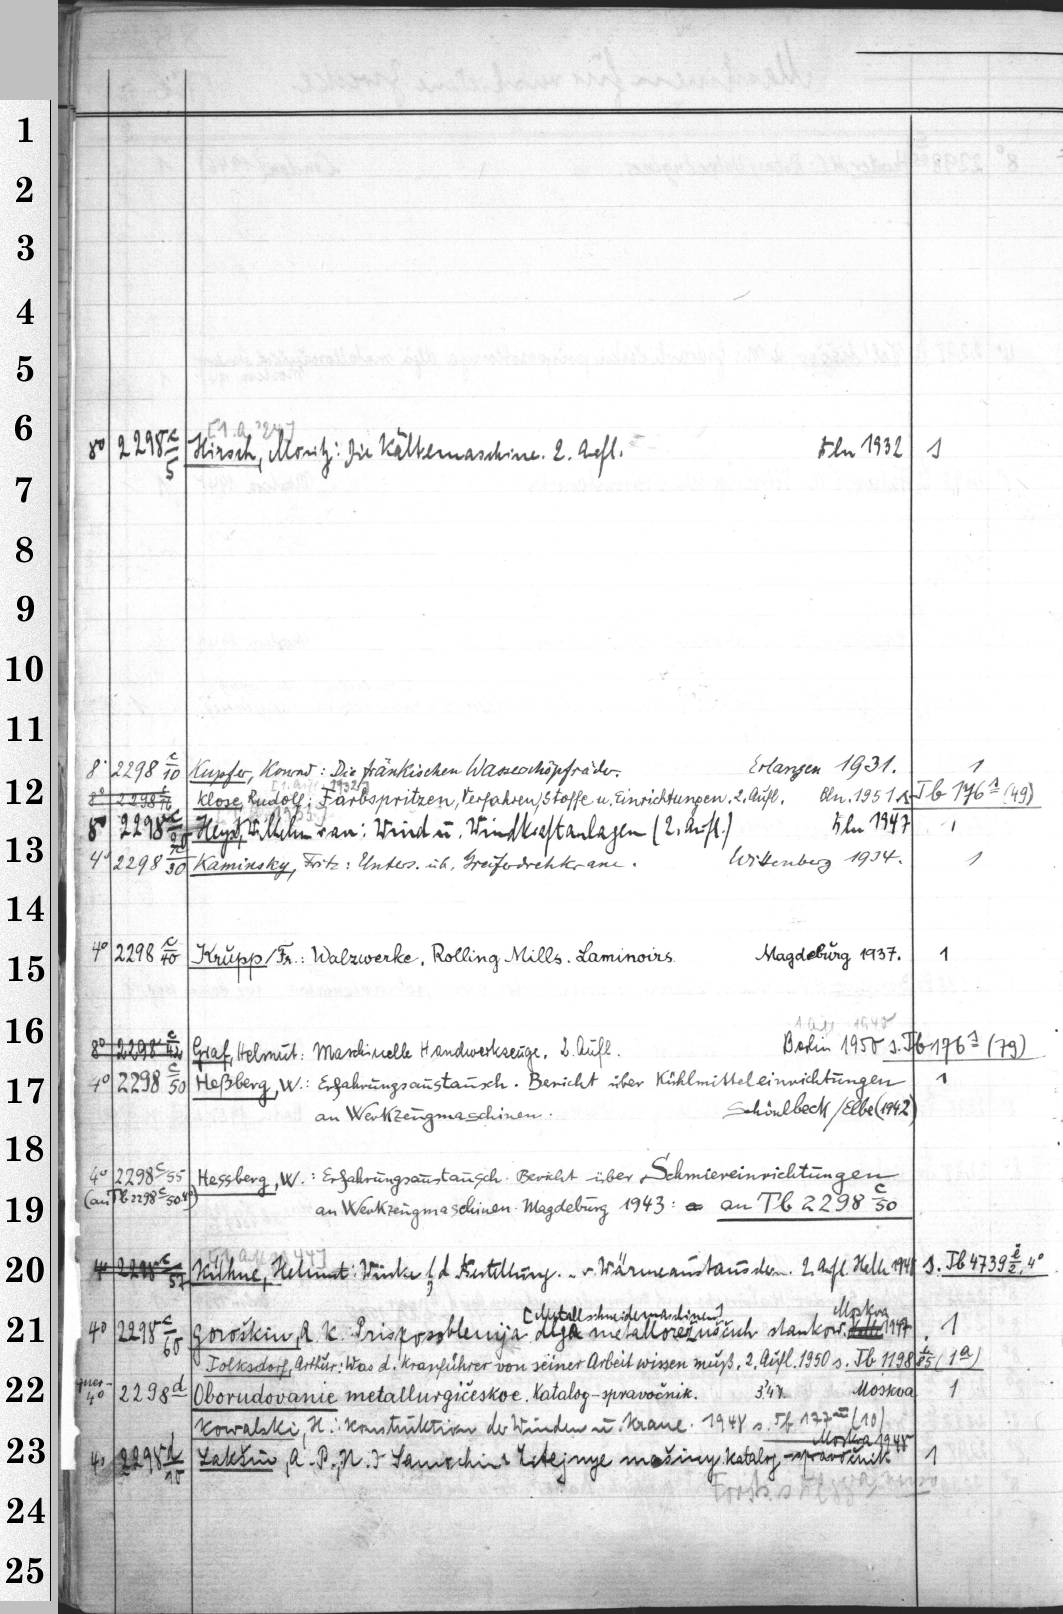 1
2
3
4
5
6
[1.A. '27]
8° 2298 c/5 Hirsch, Moritz: Die Kältemaschine. 2. Aufl. Bln 1932 1
7
8
9
10
11
8° 2298 c/10 Kupfer, Konrad: Die fränkischen Wasserschöpfräder. Erlangen 1931. 1
12
Klose, Rudolf: Farbspritzen, Verfahren, Stoffe u. Einrichtungen. 2. Aufl. Bln. 1951 s. Tb 176 (49)
8° 2298 c/20 Heys, Wilhelm van: Wind u. Windkraftanlagen (2. Aufl.) Bln 1947 1
13
4° 2298 c/30 Kaminsky, Fritz: Unters. üb. Greiferdrehkrane. Wittenberg 1934. 1
14
4° 2298 c/40 Krupp, Fr.: Walzwerke. Rolling Mills. Laminoirs Magdeburg 1937. 1
15
16
8° 2298 c/42 Graf, Helmut: Maschinelle Handwerkzeuge. 2. Aufl. Berlin 1950 s. Tb 176 (79)
17
4° 2298 c/50 Heßberg, W.: Erfahrungsaustausch. Bericht über Kühlmitteleinrichtungen 1
an Werkzeugmaschinen. Schönebeck/Elbe (1942)
18
4° 2298 c/55 Hessberg, W.: Erfahrungsaustausch. Bericht über Schmiereinrichtungen
(an Tb 2298 c/50 4°) an Werkzeugmaschinen. Magdeburg 1943: an Tb 2298 c/50
19
20
4° 2298 c/57 Kühne, Helmut: d. Herstellung. v Wärmeaustauschern. 2. Aufl. Halle 1948 s. Tb 4739 e/2, 4°
[Metallschneidemaschinen] Moskva
21
4° 2298 c/60 Goroškin, A. K. Prisposoblenija dlja metallorežuščich stankov. 1947. 1
Folksdorf, Arthur: Was d. Kranführer von seiner Arbeit wissen muß. 2. Aufl. 1950 s. Tb 1198 t/85 (1a)
22
quer-4° 2298 d Oborudovanie metallurgičeskoe. Katalog-spravočnik. 3'47 Moskva 1
Kowalski, H.: Konstruktion der Winden u. Krane. 1948 s. Tb 177 (10)
Moskva 1948
23
4° 2298 d/10 Lakšin, A. P., N. I Samochin: Litejnye mašiny. Katalog-spravočnik 1
24
25